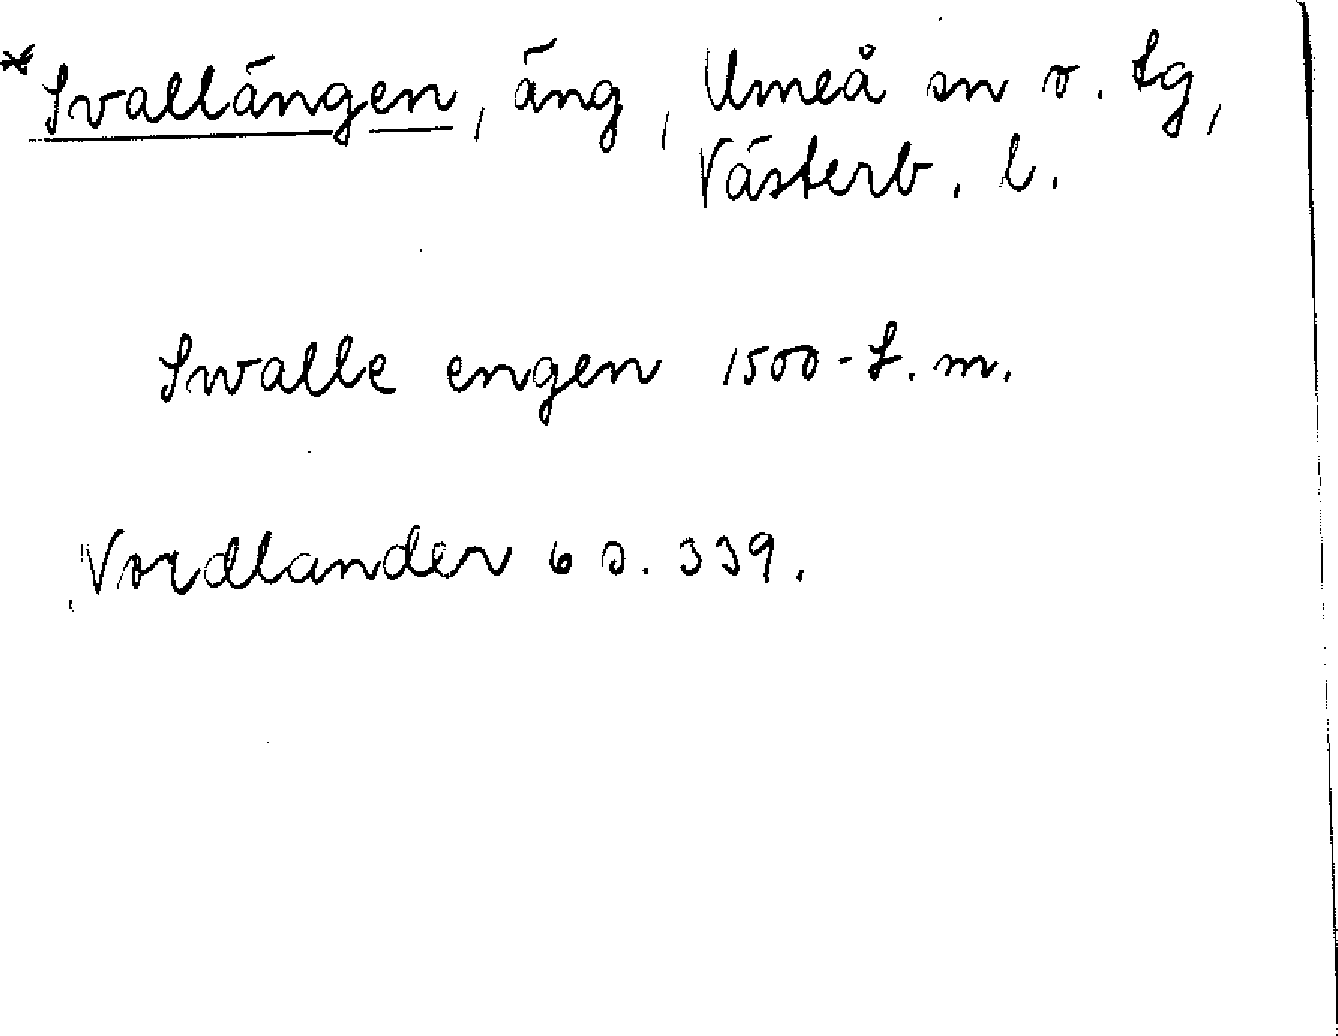 *Svallängen, äng, Umeå sn o. tg,
Västerb. l.
Swalle engen 1500-t. m.
Nordlander 6 s. 339.